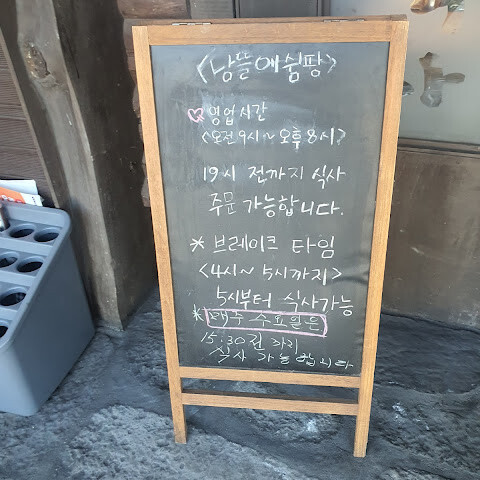 <남뜰애쉼팡>
영업시간
<오전9시~오후8시>
19시 전까지 식사
주문 가능합니다.
* 브레이크 타임
<4시~5시까지>
5시부터 식사가능
* 매주 수요일은
15:30전 까지
식사 가능합니다